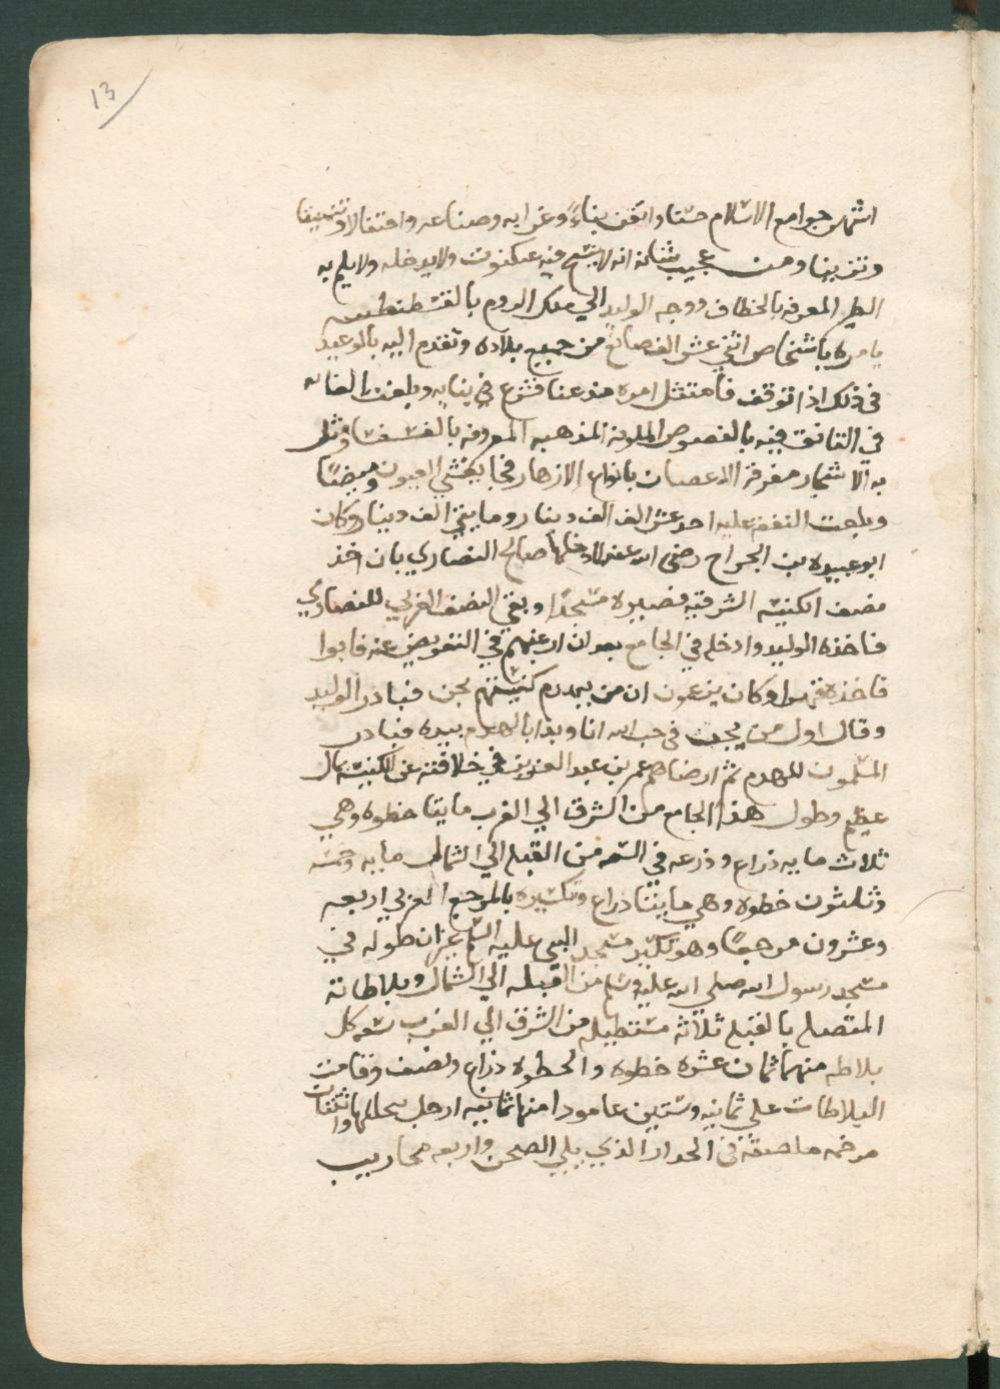 13
اشهر جوامع الاسلام حسنا واتقن بناءً وغرابه وصناعه واحتفالا وتنميقا
وتزيينا ومن عجيب شانه انه لا ينسج فيه عنكبوت ولا يدخله ولا يلم به
الطير المعرفه بالخطاف ووجه الوليد الي ملك الروم بالقسطنطينيه
يامره باشخاص اثني عشر الف صانع من جميع بلاده وتقدم اليه بالوعيد
في ذلك اذا توقف فامتثل امره مذعنا فشرع في بنايه وبلغت الغايه
في التانق فيه بالفصوص الملونه المذهبه المعروفه بالفسفسا ومثل
به الاشجار مفرقة الاغصان بانواع الازهار فجا يغشي العيون وميضًا
وبلغت النفقه عليه احد عشر الف الف دينار ومايتي الف دينار وكان
ابو عبيده بن الجراح رضي الله عنه لما دخلها صالح النصاري بان اخذ
نصف الكنيسه الشرقيه فصيره مسجدًا وبقي النصف الغربي للنصاري
فاخذه الوليد وادخله في الجامع بعد ان ارغبهم في التعويض عنه فابوا
فاخذه قهرا وكان يزعمون ان من يهدم كنيستهم يجن فبادر الوليد
وقال اول من يجن في حب الله انا وبدا بالهدم بيده فبادر
المسلمون للهدم ثم ارضاهم عمر بن عبد العزيز في خلافته عن الكنيسه بمال
عظيم وطول هذا الجامع من الشرق الي الغرب مايتا خطوه وهي
ثلاث مايه ذراع وذرعه في السعه من القبله الي الشمال مايه وخمسه
وثلثون خطوه وهي مايتا ذراع وتكسيره بالمرجع الغربي اربعه
وعشرون مرجعًا وهو تكسير مسجد النبي عليه السلام غير ان طوله في
مسجد رسول الله صلي الله عليه وسلم من القبله الي الشمال وبلاطاته
المتصله بالقبله ثلاثه مستطيله من الشرق الي الغرب سعه كل
بلاطه منها ثمان عشره خطوه والخطوه ذراع ونصف وقامت
البلاطات علي ثمانيه وستين عامودا منها ثمانيه ارجل يتخللها واثنتان
مرخمه ملصقه في الجدار الذي يلي الصحن واربعه محاريب